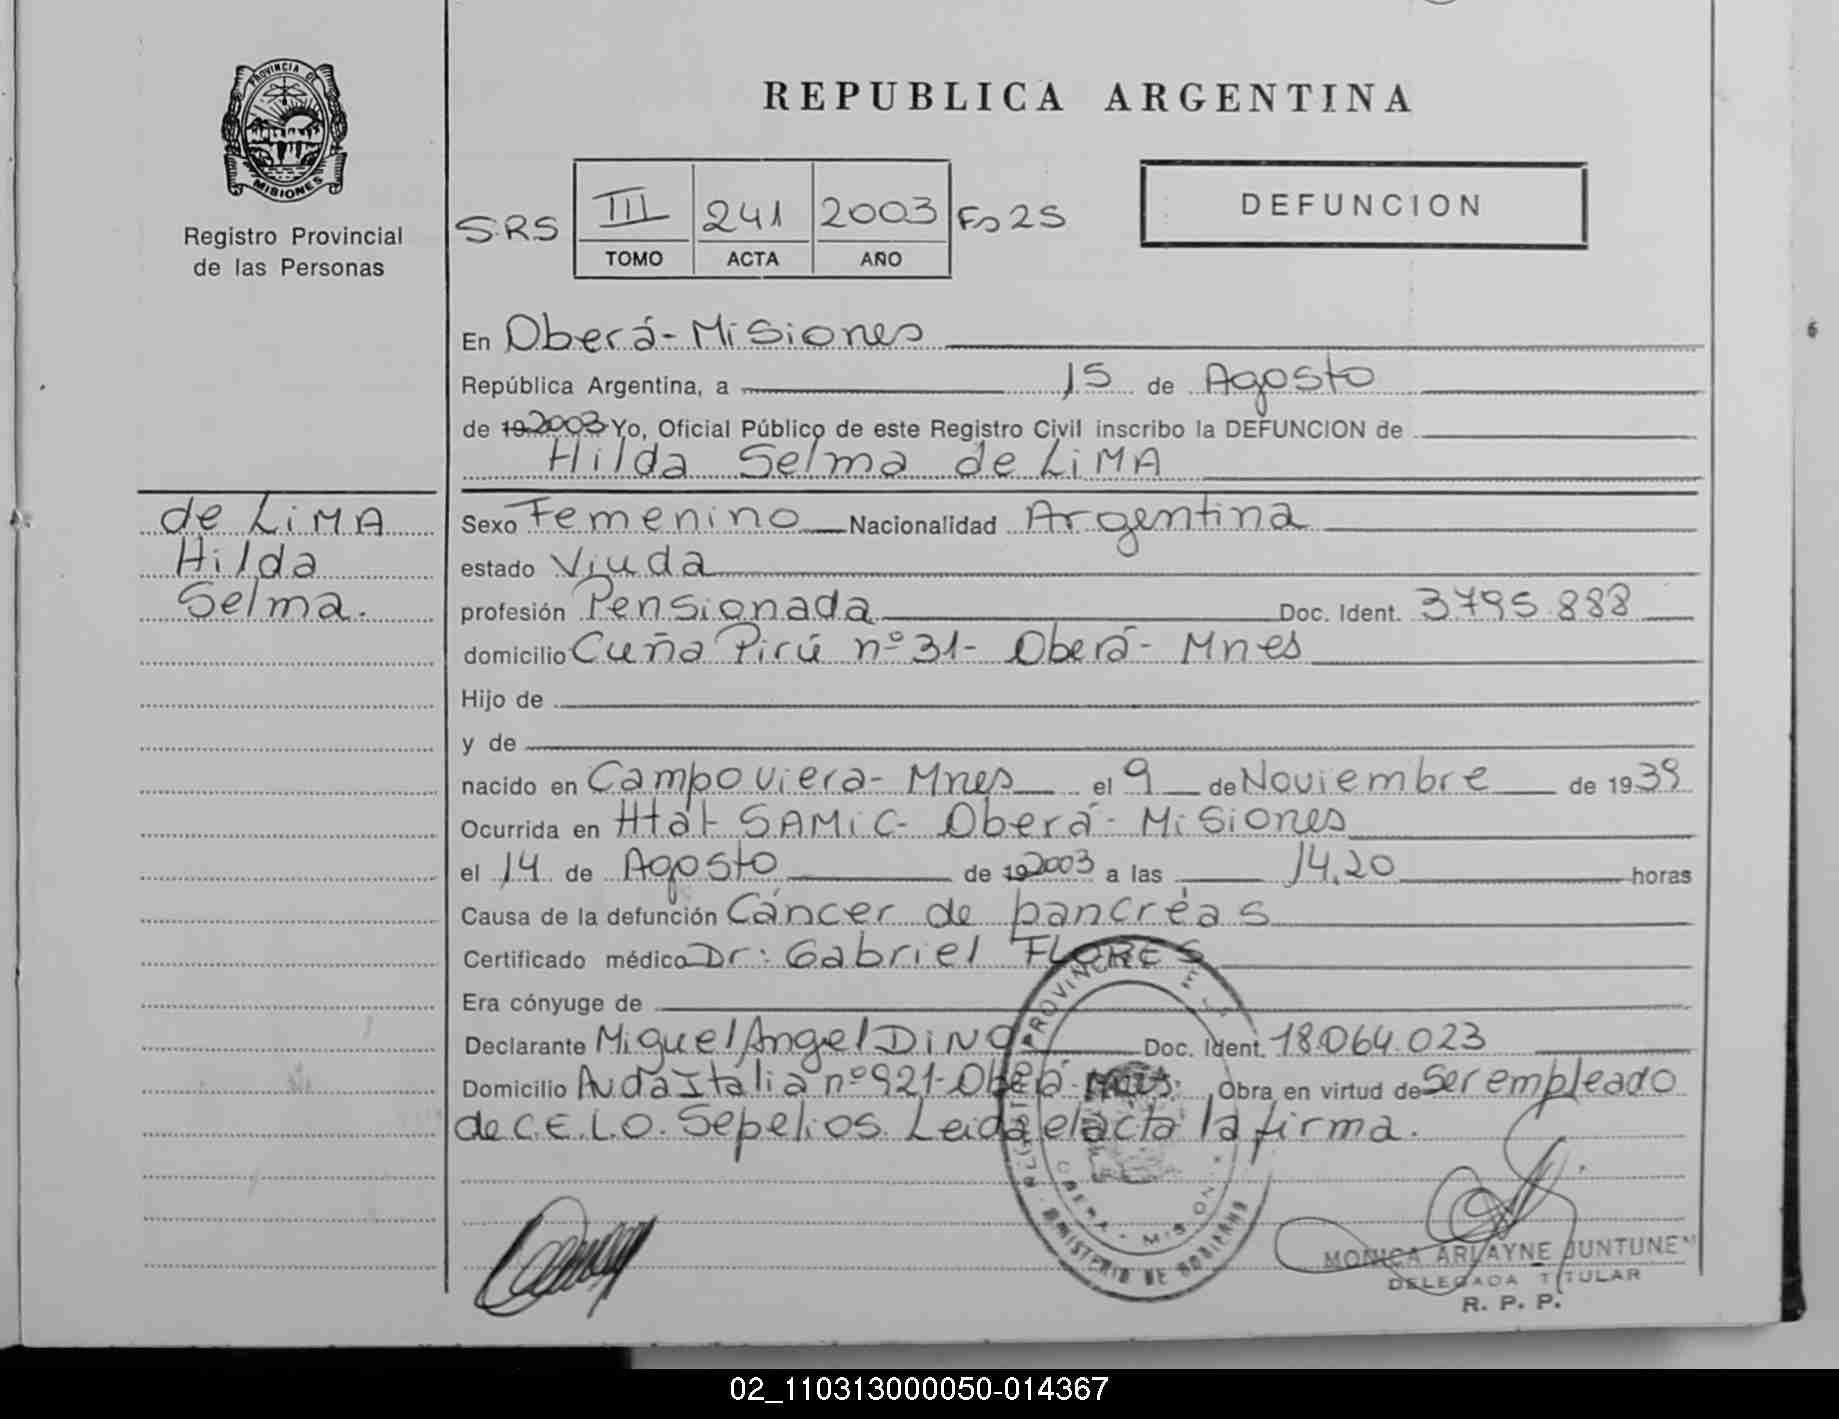 PROVINCIA DE
MISIONES
Registro Provincial
de las Personas
REPUBLICA ARGENTINA
SRS III 241 2003 Fo 25
TOMO ACTA AÑO
DEFUNCION
En Oberá-Misiones
República Argentina, a 15 de Agosto
de 19 2003 Yo, Oficial Público de este Registro Civil inscribo la DEFUNCION de
Hilda Selma de LiMA
de LiMA
Hilda
Selma.
Sexo Femenino Nacionalidad Argentina
estado Viuda
profesión Pensionada Doc. Ident. 3795.888
domicilio Cuña Pirú nº 31- Oberá- Mnes
Hijo de
y de
nacido en Campo Viera- Mnes el 9 de Noviembre de 1939
Ocurrida en Htal- SAMiC- Oberá- Misiones
el 14 de Agosto de 19 2003 a las 14,20 horas
Causa de la defunción Cáncer de páncréas
Certificado médico Dr: Gabriel FLORES
Era cónyuge de
Declarante Miguel Angel DiNO Doc. Ident. 18.064.023
Domicilio Avda Itália nº 921- Oberá- Mnes. Obra en virtud de Ser empleado
de C.E.L.O. Sepelios. Leida el acta la firma.
MINISTERIO DE GOBIERNO
MONICA ARLAYNE JUNTUNEN
DELEGADA TITULAR
R. P. P.
02_110313000050-014367